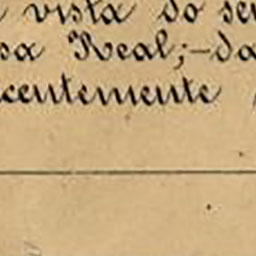 vista do seu
sa Real;—da
centemente